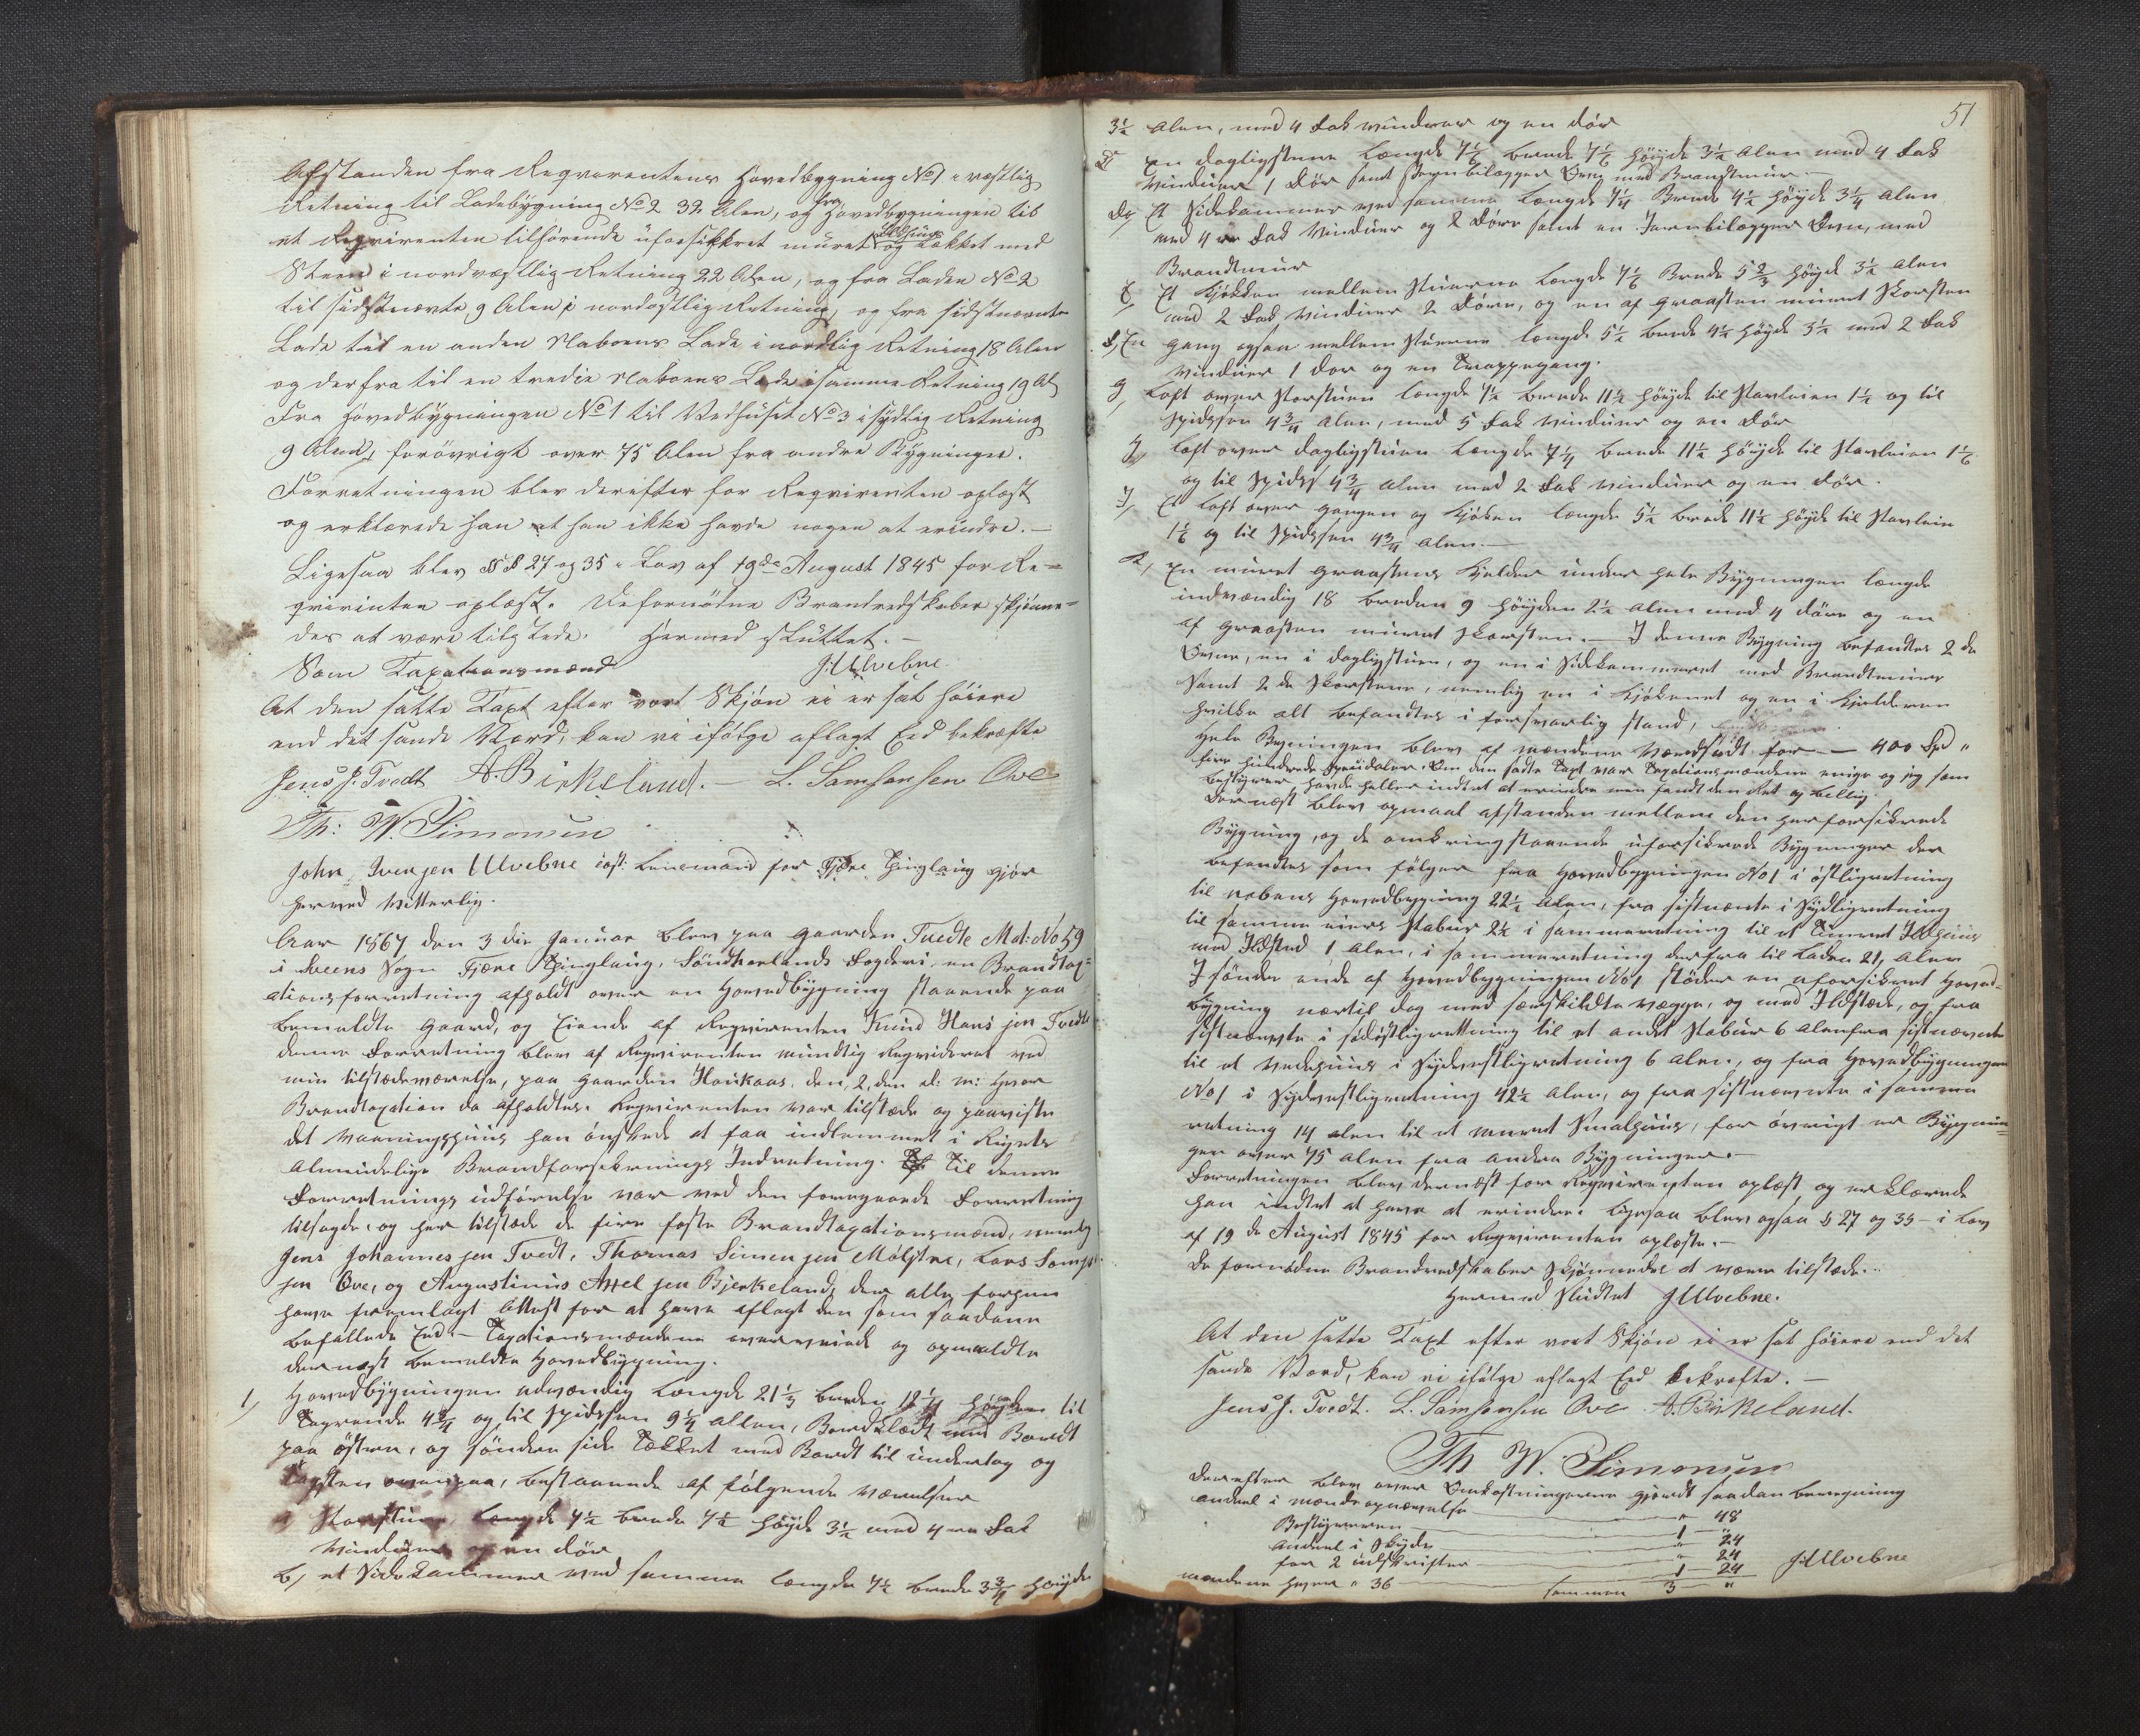 Afstanden fra Reqvirentens Hovedbygning No 1 i vestlig
Retning til Ladebygning No 2 32 Alen, og fra Hovedbygningen til
et Reqvirenten tilhørende uforsikkret muret Ildhuus og tækket med
Steen i nordvestlig Retning 22 Alen, og fra Laden No 2
til sidstnævnte 9 Alen i nordostlig Retning, og fra sidstnævnte
Lade til en anden Naboens Lade i nordlig Retning 18 Alen
og derfra til en tredie Naboens Lade i samme Retning 19 Al
Fra Hovedbygningen No 1 til Vedhuset No 3 i sydlig Retning
9 Alen, forøvrigt over 75 Alen fra andre Bygninger.
Forretningen blev derefter for Reqvirenten oplæst
og erklærede han at han ikke havde nogen at erindre. —
Ligesaa blev §§ 27 og 35 i Lov af 19de August 1845 for Re=
qvirinten oplæst. De fornødne Brantredskaber skjønne=
des at være tilstede. Hermed sluttet. —
Som Taxationsmænd JUlvebne.
At den satte Taxt efter vort Skjøn ei er sat høiere
end det sande Værd, kan vi ifølge aflagt Eed bekræfte
Jens J. Tvedt A. Birkeland. — L. Samsonsen Ove
Th: W. Simonsen
John Iversen Ulvebne const: Lensmand for Fjære Thinglaug gjør
hermed Vitterlig.
Aar 1867 den 3die Januar blev paa Gaarden Tvedte Mat: No 59
i Sveens Sogn Fjære Thinglaug, Søndhorlands Fogderi en Brandtax=
ationsforretning afholdt over en Hovedbygning staaende paa
bemeldte Gaard, og Eiende af Reqvirenten Knud Hans sen Tvedte
denne Forretning blev af Reqvirenten mundtlig Reqvideret ved
min tilstædeværelse, paa Gaarden Haukaas, den 2den d: m: hvor
Brandtaxtion da afholdtes. Reqvirenten var tilstæde og paaviste
det Vaaningshuus han ønskede at faa indlemmet i Rigets
Almindelige Brandforsikrings Indretning. Til denne
Forretnings udførelse var ved den foregaaende Forretning
tilsagde, og her tilstæde de fire faste Brandtaxationsmænd, nemlig
Jens Johannes sen Tvedt, Thomas Simen sen Mølstre, Lars Samson
sen Ove, og Augustinius Axel sen Bjerkeland, der alle forhen
have fremlagt Attest for at have aflagt den som saadanne
befallede Eed. — Taxationsmændene overveiede og opmaaldte
dernæst bemeldte Hovedbygning.
1, Hovedbygningen udvændig Længde 21 1/3 breden 12 1/4 høyden til
Tagrende 4 3/4 og til Spidssen 9 1/4 allen, Bordklædt med Bordt
paa østre, og søndre side Tækket med Bordt til undertag og
Tagsten ovenpaa, bestaaende af følgende Værelser
a Storstue, Længde 7 1/2 brede 7 1/2 høyde 3 1/2 med 4 re Fak
Vinduer og en dør
b, et Sidekammer ved samme længde 7 1/2 brede 3 3/4 høyde
51
3 1/2 Alen, med 4 Fak vinduer og en dør
En dagligstue Længde 7 1/6 brede 7 1/6 høyde 3 1/2 Alen med 4 Fak
Vinduer 1 dør samt Jernbilægger Ovn med Brandtmur. —
d, Et Sidekammer ved samme længde 7 1/4 Brede 4 1/2 høyde 3 1/4 alen
med 4 re Fak Vinduer og 2 døre samt en Jernbilægger Ovn, med
Brandtmur
e, Et Kjøkken mellem Stuerne længde 7 1/6 Brede 5 2/3 høyde 3 1/2 alen
med 2 Fak Vinduer 2 døre, og en af graasten muret Skorsten
f, En gang ogsaa mellem Stuerne længde 5 1/2 brede 4 1/2 høyde 3 1/2 med 2 Fak
Vinduer 1 dør og en Trappegang.
g, Loft over Storstuen længde 7 1/2 brede 11 1/2 høyde til Stavleien 1 1/2 og til
Spidssen 4 3/4 alen, med 5 Fak vinduer og en dør
loft over dagligstuen længde 7 1/4 brede 11 1/2 høyde til Stavleien 1 1/6
og til Spids 4 3/4 alen med 2 Fak vinduer og en dør.
J, Et loft over gangen og kjøken længde 5 1/2 brede 11 1/2 høyde til Stavlein
1 1/6 og til Spidssen 4 3/4 alen. —
K, En muret graastens Kjelder under hele Bygningen længde
indvændig 18 breden 9 høyden 2 1/2 alen med 4 døre og en
af graasten muret Skorsten. — I denne Bygning befandtes 2 de
Ovne, en i dagligstuen, og en i Sidekammeret med Brandtmure
samt 2 de Skorstene, nemlig en i kjøkenet og en i Kjelderen
hvilke alt befandtes i forsvarlig stand,
hele Bygningen blev af mændene værdsadt for — 400 Spd "
fire hundrede Speciedaler. Om den satte Taxt var Taxationsmændene enige og jeg som
Bestyrer havde heller indtet at erindre men fandt den Ret og billig.
Dernæst blev opmaalt afstanden mellem den her forsikrede
Bygning, og de omkringstaaende uforsikrede Bygninger der
befandtes som følger fra Hovedbygningen No 1 i østligretning
til nabens Hovedbygning 22 1/2 alen, fra sistnænte i Sydligretning
til samme eiers Stabur 2 1/2 i sammeretning til et Tømret Ildhuus
med Ildsted 1 alen, i sammeretning derfra til Laden 21, alen
I søndre ende af Hovedbygningen No 1 støder en uforsikret Hoved=
bygning nærtil dog med særskildte vægge, og med Ildstæde, og fra
sistnævnte i sødøstligretning til et andet Stabur 6 alen fra sistnævnte
til et Vedehuus i Sydvestligretning 6 alen, og fra Hovedbygningen
No 1 i Sydvestligretning 42 1/2 alen, og fra sistnævnte i samme
retning 14 alen til et muret Smalhuus, for øvrigt er Bygnin=
gen over 75 alen fra andre Bygninger. —
Forretningen blev dernæst for Reqvirenten oplæst og erklærede
han indtet at have at erindre. Ligesaa blev ogsaa § 27 og 35 — i Lov
af 19 de August 1845 for Reqvirenten oplæste. —
De fornødne Brandredskaber skjønnedes at være tilstæde. —
Hermed Sludtet JUlvebne.
At den satte Taxt efter vort Skjøn ei er sat høiere end det
sande Værd, kan vi ifølge aflagt Eed bekræfte. —
Jens J. Tvedt. L. Samsonsen Ove A. Birkeland.
Th W. Simonsen
Derefter blev over Omkostningerne gjordt saadan beregning
andeel i mændsopnævnelse " 48
Bestyreren 1 — "
andeel i Skyds " 24
for 2 udskrifter " 24
mændene hver " 36 1 — 24 JUlvebne
sammen 3 — "